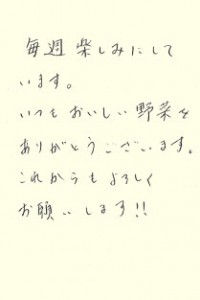 毎週楽しみにして
います。
いつもおいしい野菜を
ありがとうございます。
これからもよろしく
お願いします!!